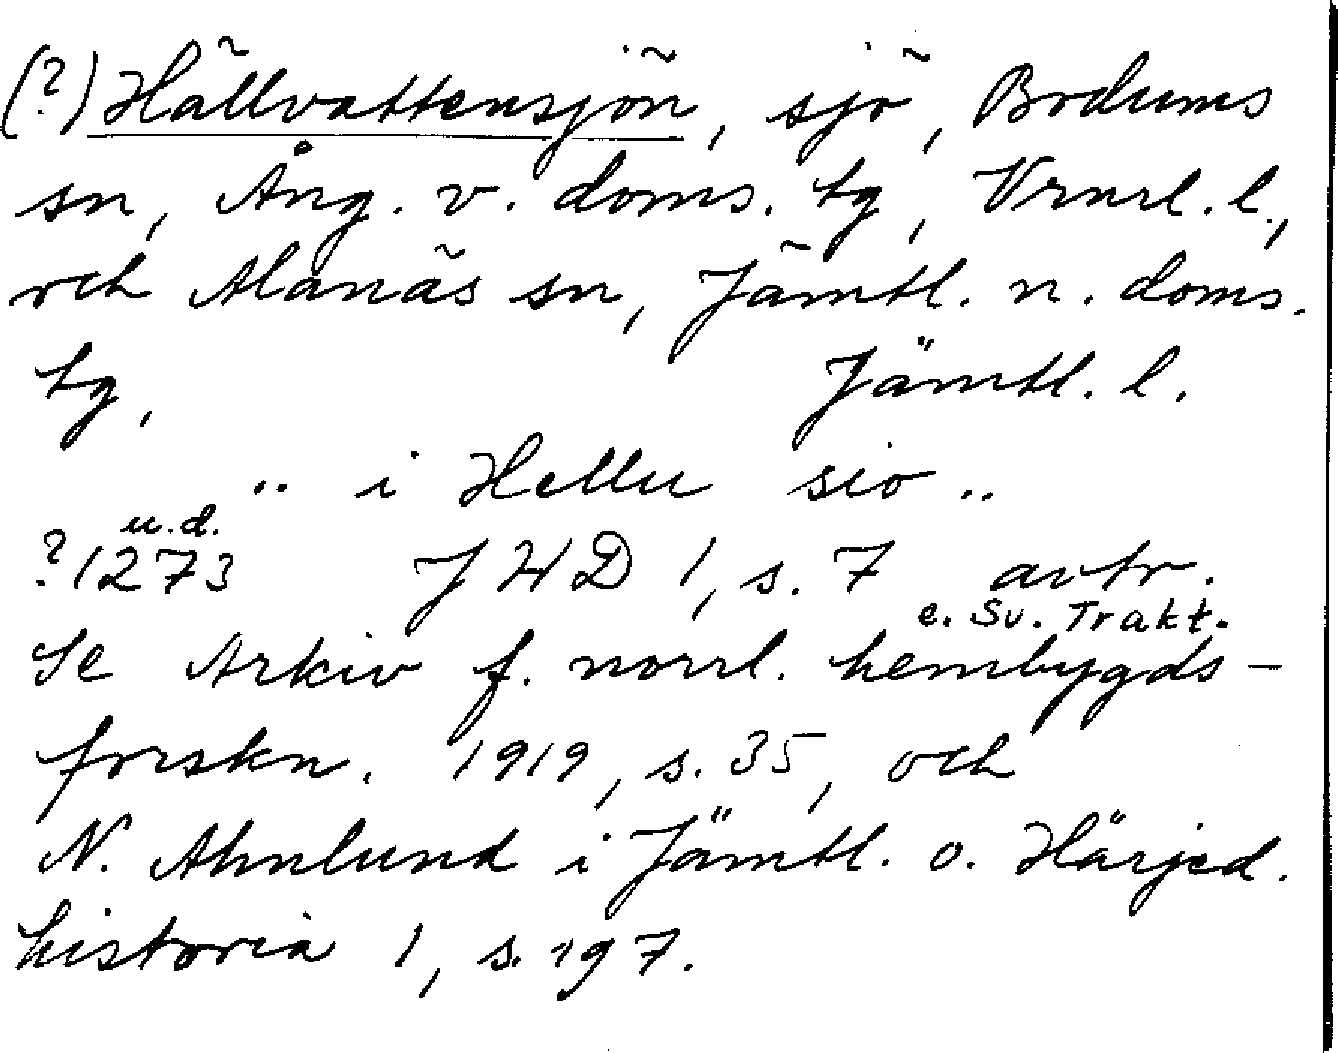 (?) Hällvattensjön, sjö, Bodums
sn, Ång. v. doms. tg, Vrnrl. l.,
och Alanäs sn, Jämtl. n. doms.
tg, Jämtl. l.
.. i Hellu sio ..
u.d.
? 1273 JHD 1, s. 7 avtr.
e. Sv. Trakt.
Se Arkiv f. norrl. hembygds-
forskn. 1919, s. 35, och
N. Ahnlund i Jämtl. o. Härjed.
historia 1, s. 197.